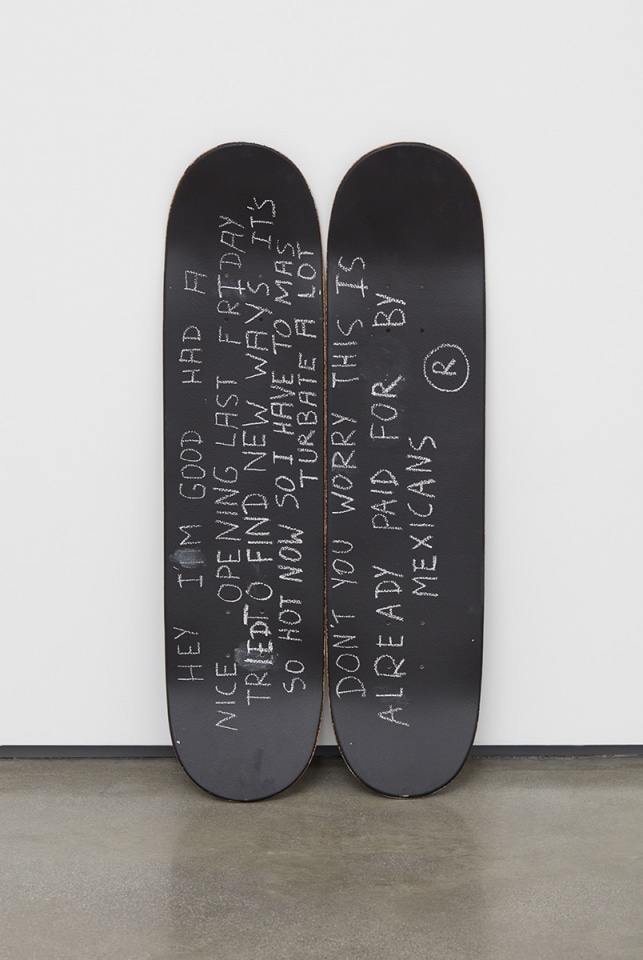 HEY I'M GOOD HAD A
NICE OPENING LAST FRIDAY
TRIED TO FIND NEW WAYS IT'S
SO HOT NOW SO I HAVE TO MAS
TURBATE A LOT
DON'T YOU WORRY THIS IS
ALREADY PAID FOR BY
MEXICANS
R